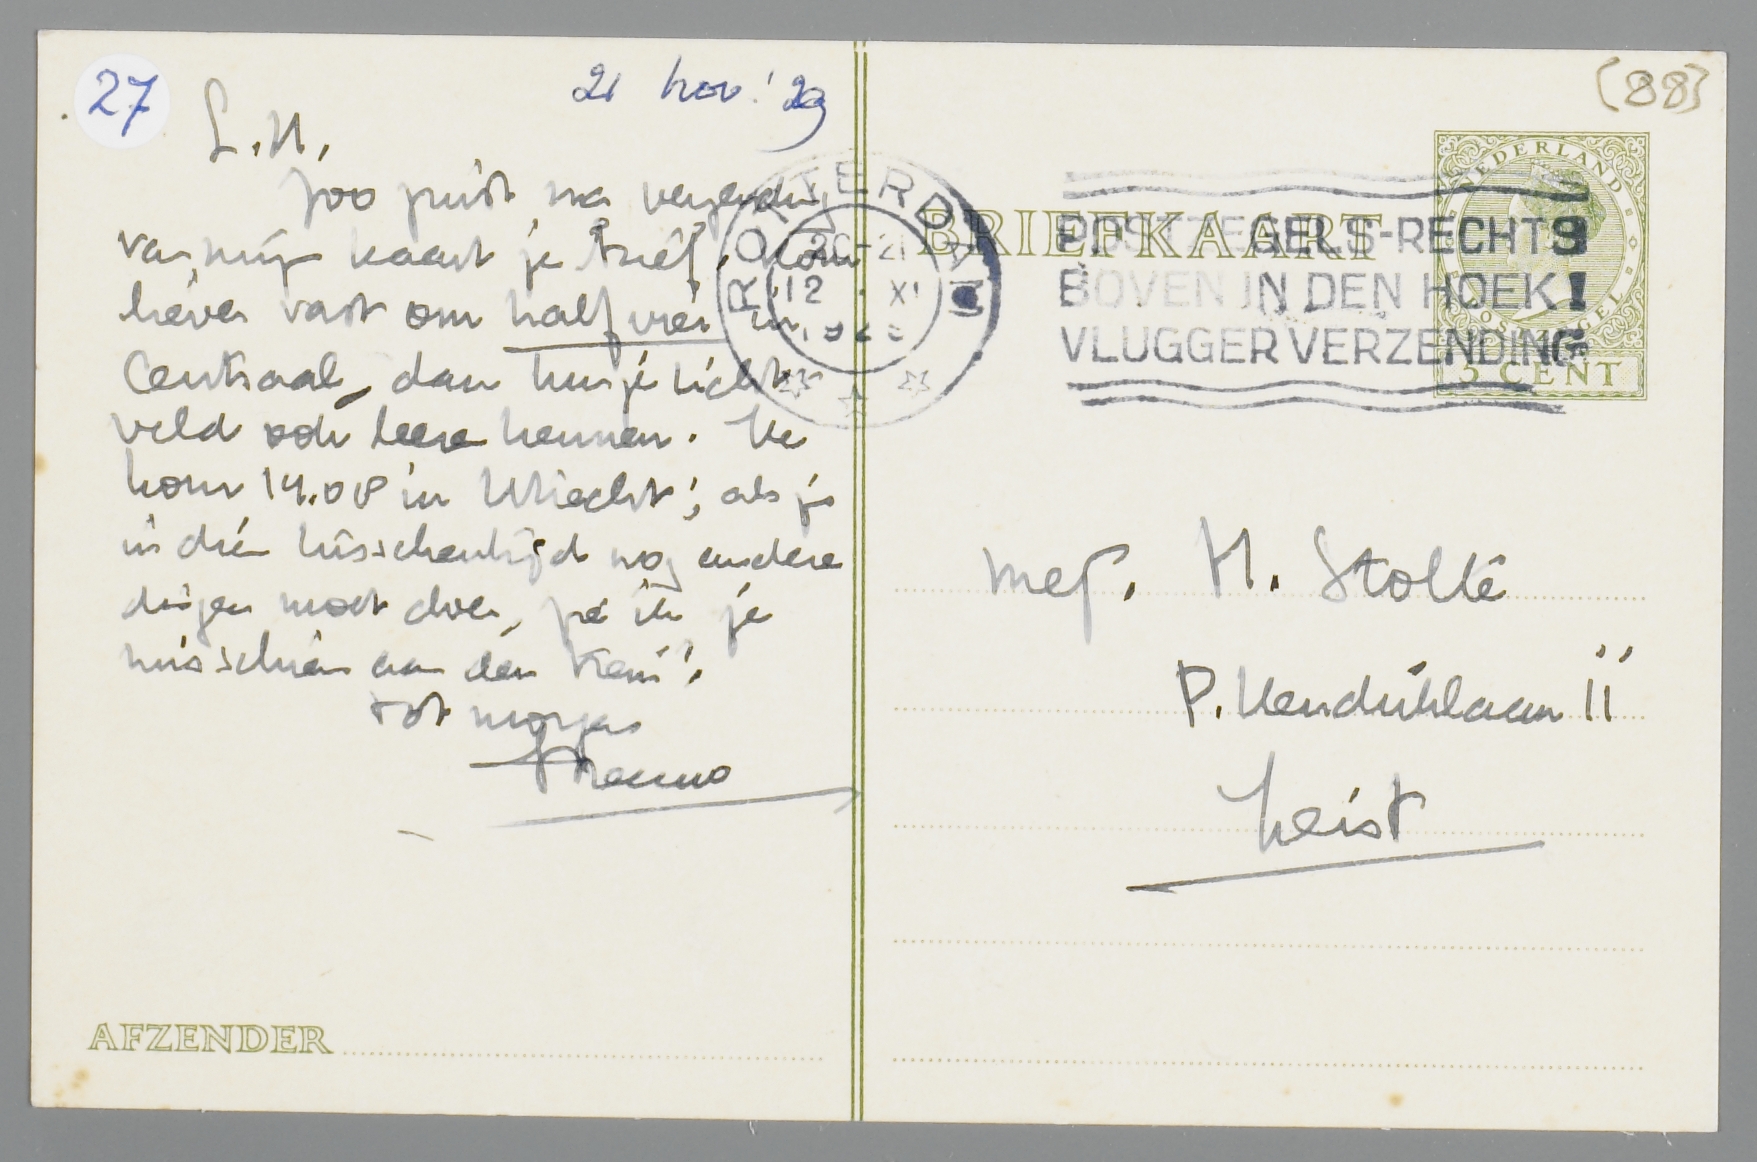 27
21 Nov. '29
(88)
L.H.
Zoo juist, na verzending
van mijn kaart je brief. Kom
liever vast om half vier in
Centraal, dan kun je Licht
veld ook leere kennen. Ik
kom 14.08 in Utrecht; als je
in dien tusschentijd nog andere
dingen moet doen, zie ik je
misschien aan den trein!.
tot morgen
Menno
AFZENDER
ROTTERDAM
20-21
12 XI
192
BRIEFKAART
POSTZEGELS-RECHTS
BOVEN IN DEN HOEK!
VLUGGER VERZENDING
NEDERLAND
POSTZEGEL
5 CENT
mej. H. Stolte
P. Hendriklaan 11
Zeist